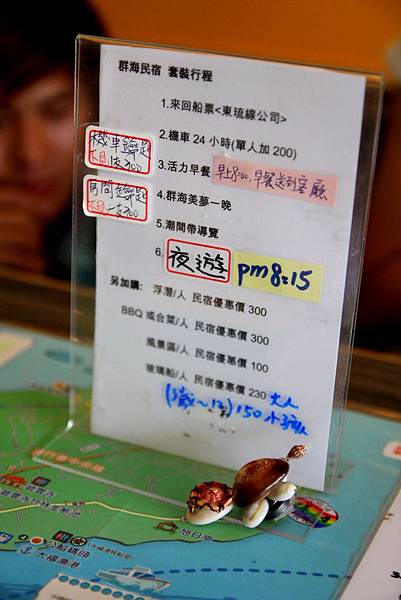 群海民宿 套裝行程
1.來回船票<東琉線公司>
2.機車 24 小時(單人加 200)
機車鑰匙
3.活力早餐
早上8:00,早餐送到客廳
房間鑰匙
4.群海美夢一晚
5.潮間帶導覽
6. 夜遊 pm8:15
另加購: 浮潛/人 民宿優惠價 300
BBQ 或合菜/人 民宿優惠價 300
風景區/人 民宿優惠價 100
玻璃船/人 民宿優惠價 230 大人
(3歲~12)150 小孩/人
旭日亭
大福漁港